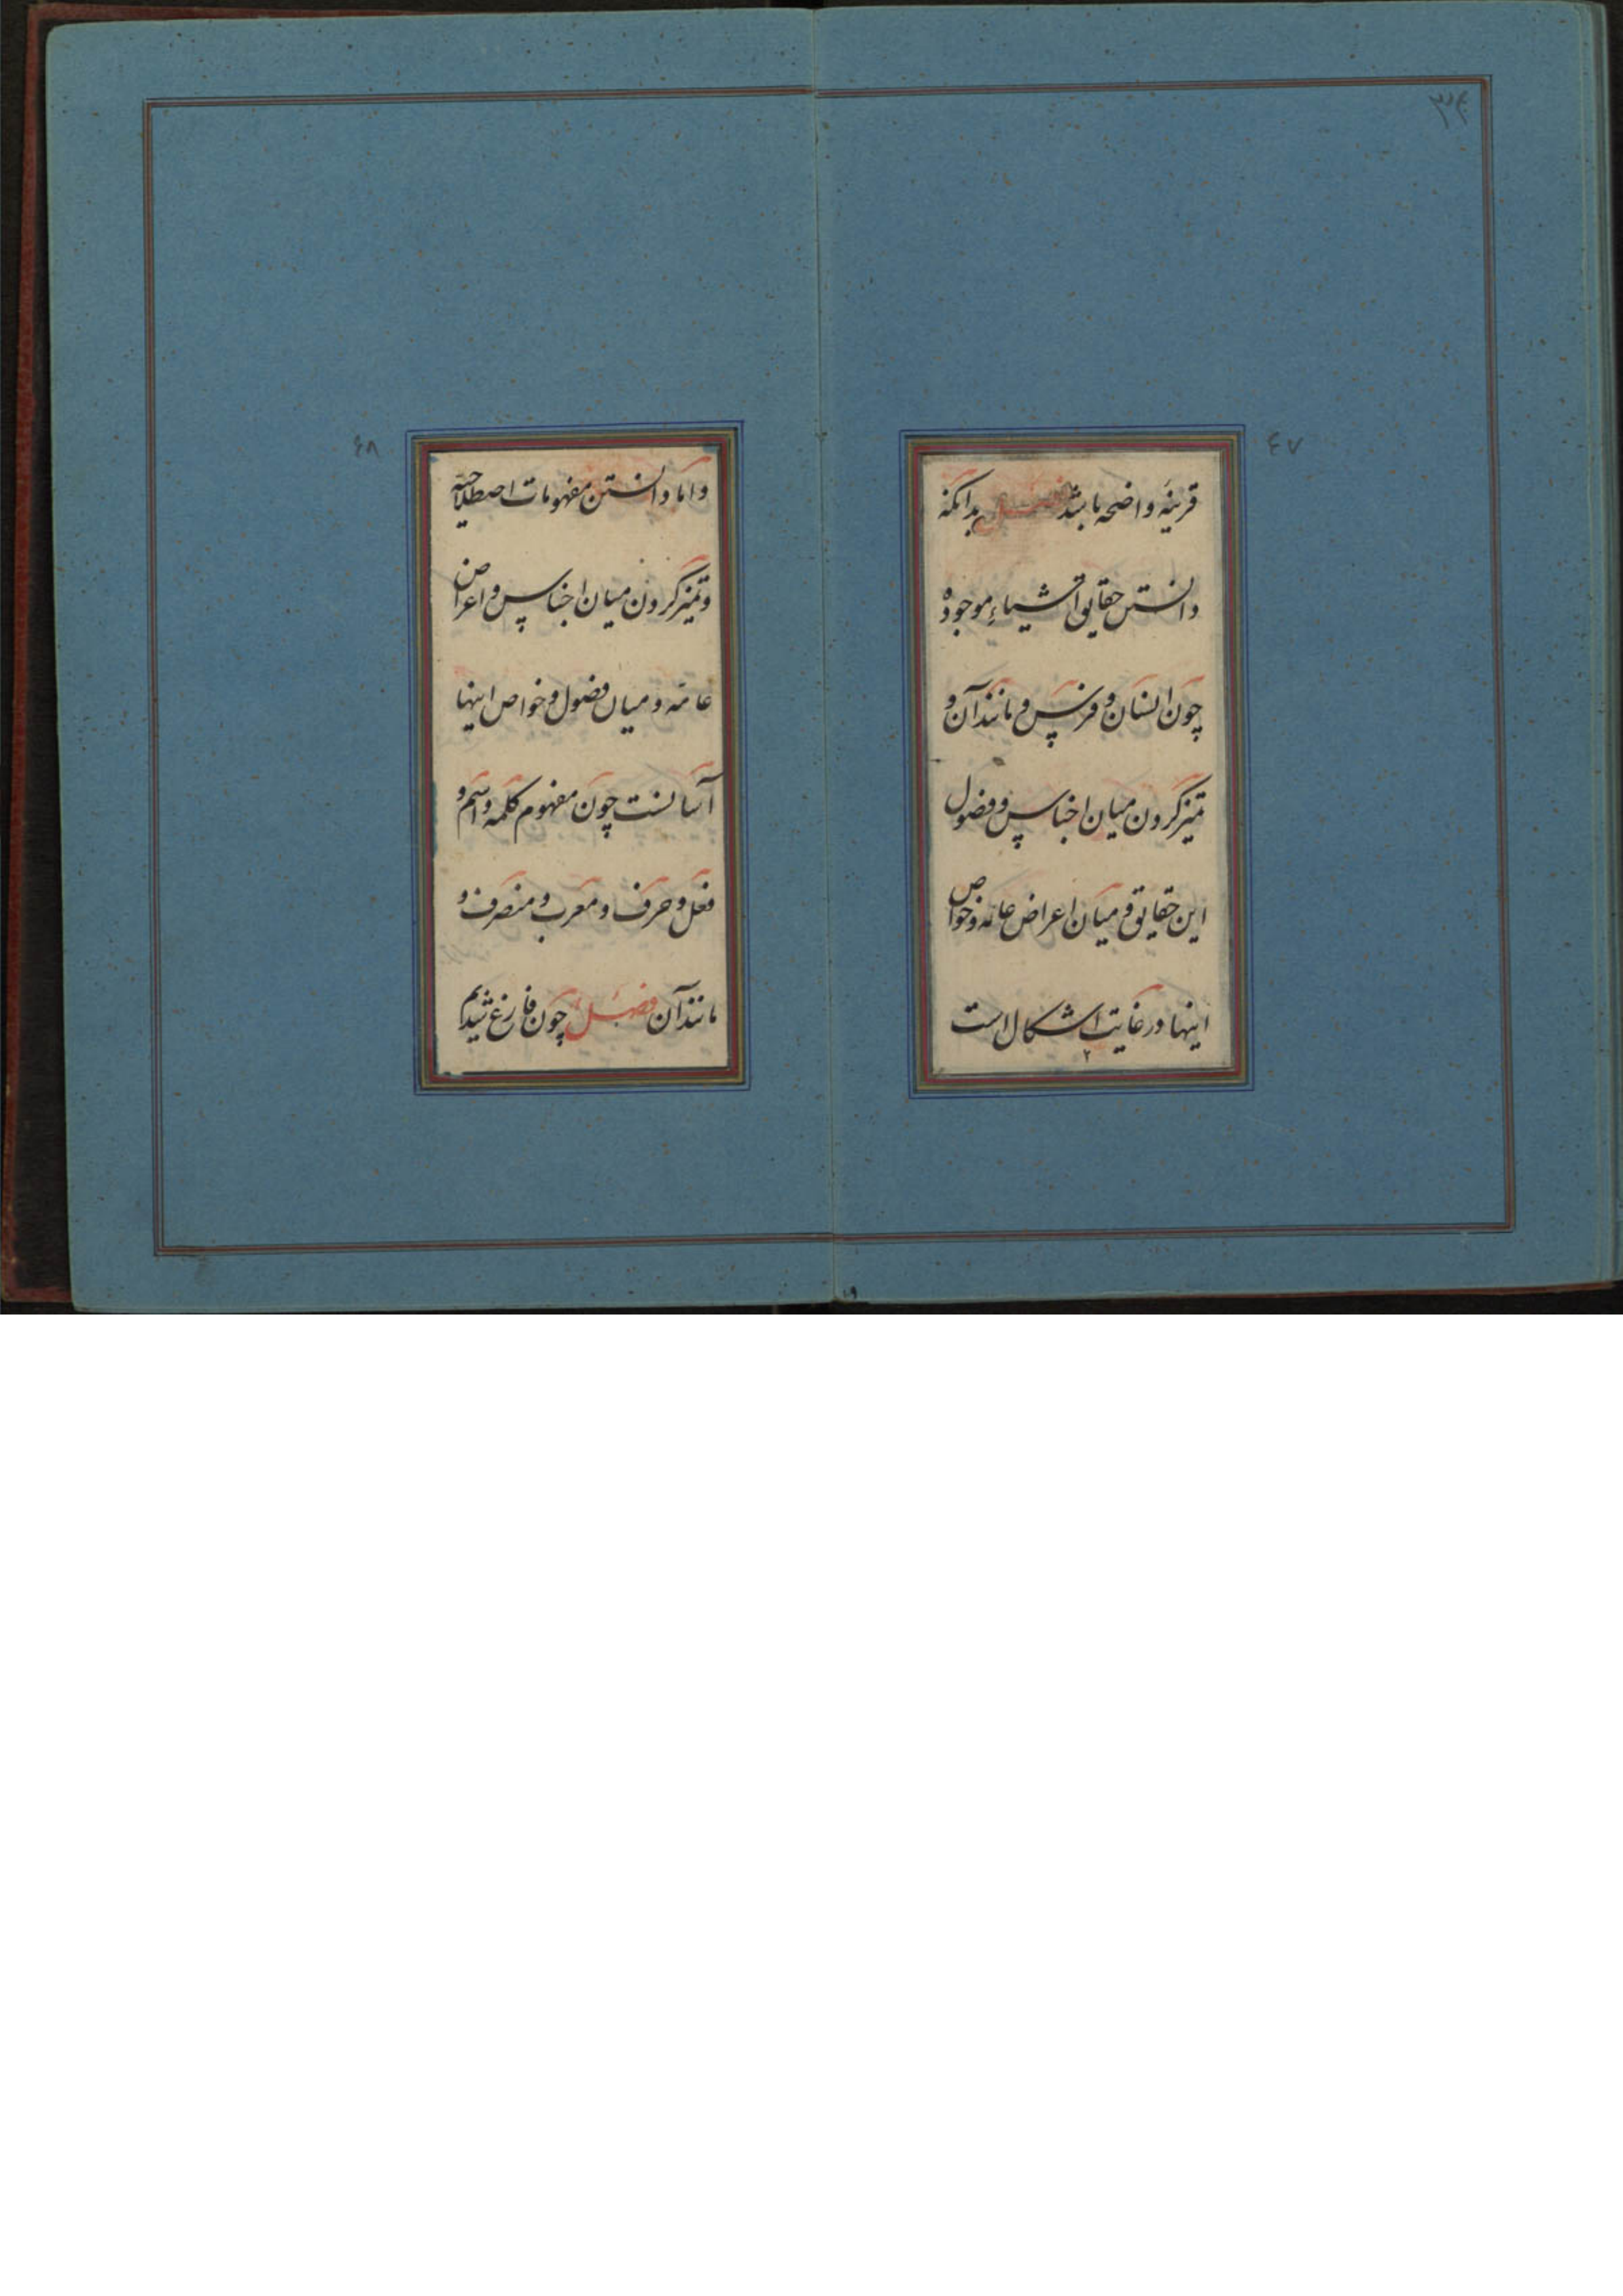 ٤٧
قرینهٔ واضحه باشد فصل بدانکه
دانستن حقایق اشیاء موجوده
چون انسان و فرس و مانند آن و
تمیز کردن میان اجناس و فصول
این حقایق و میان اعراض عامه و خواص
اینها در غایت اشکال است
٢
٤٨
و اما دانستن مفهومات اصطلاحیه
و تمیز کردن میان اجناس و اعراض
عامّه و میان فصول و خواص اینها
آسانست چون مفهوم کلمه و اسم و
فعل و حرف و معرب و منصرف و
مانند آن فصل چون فارغ شدیم